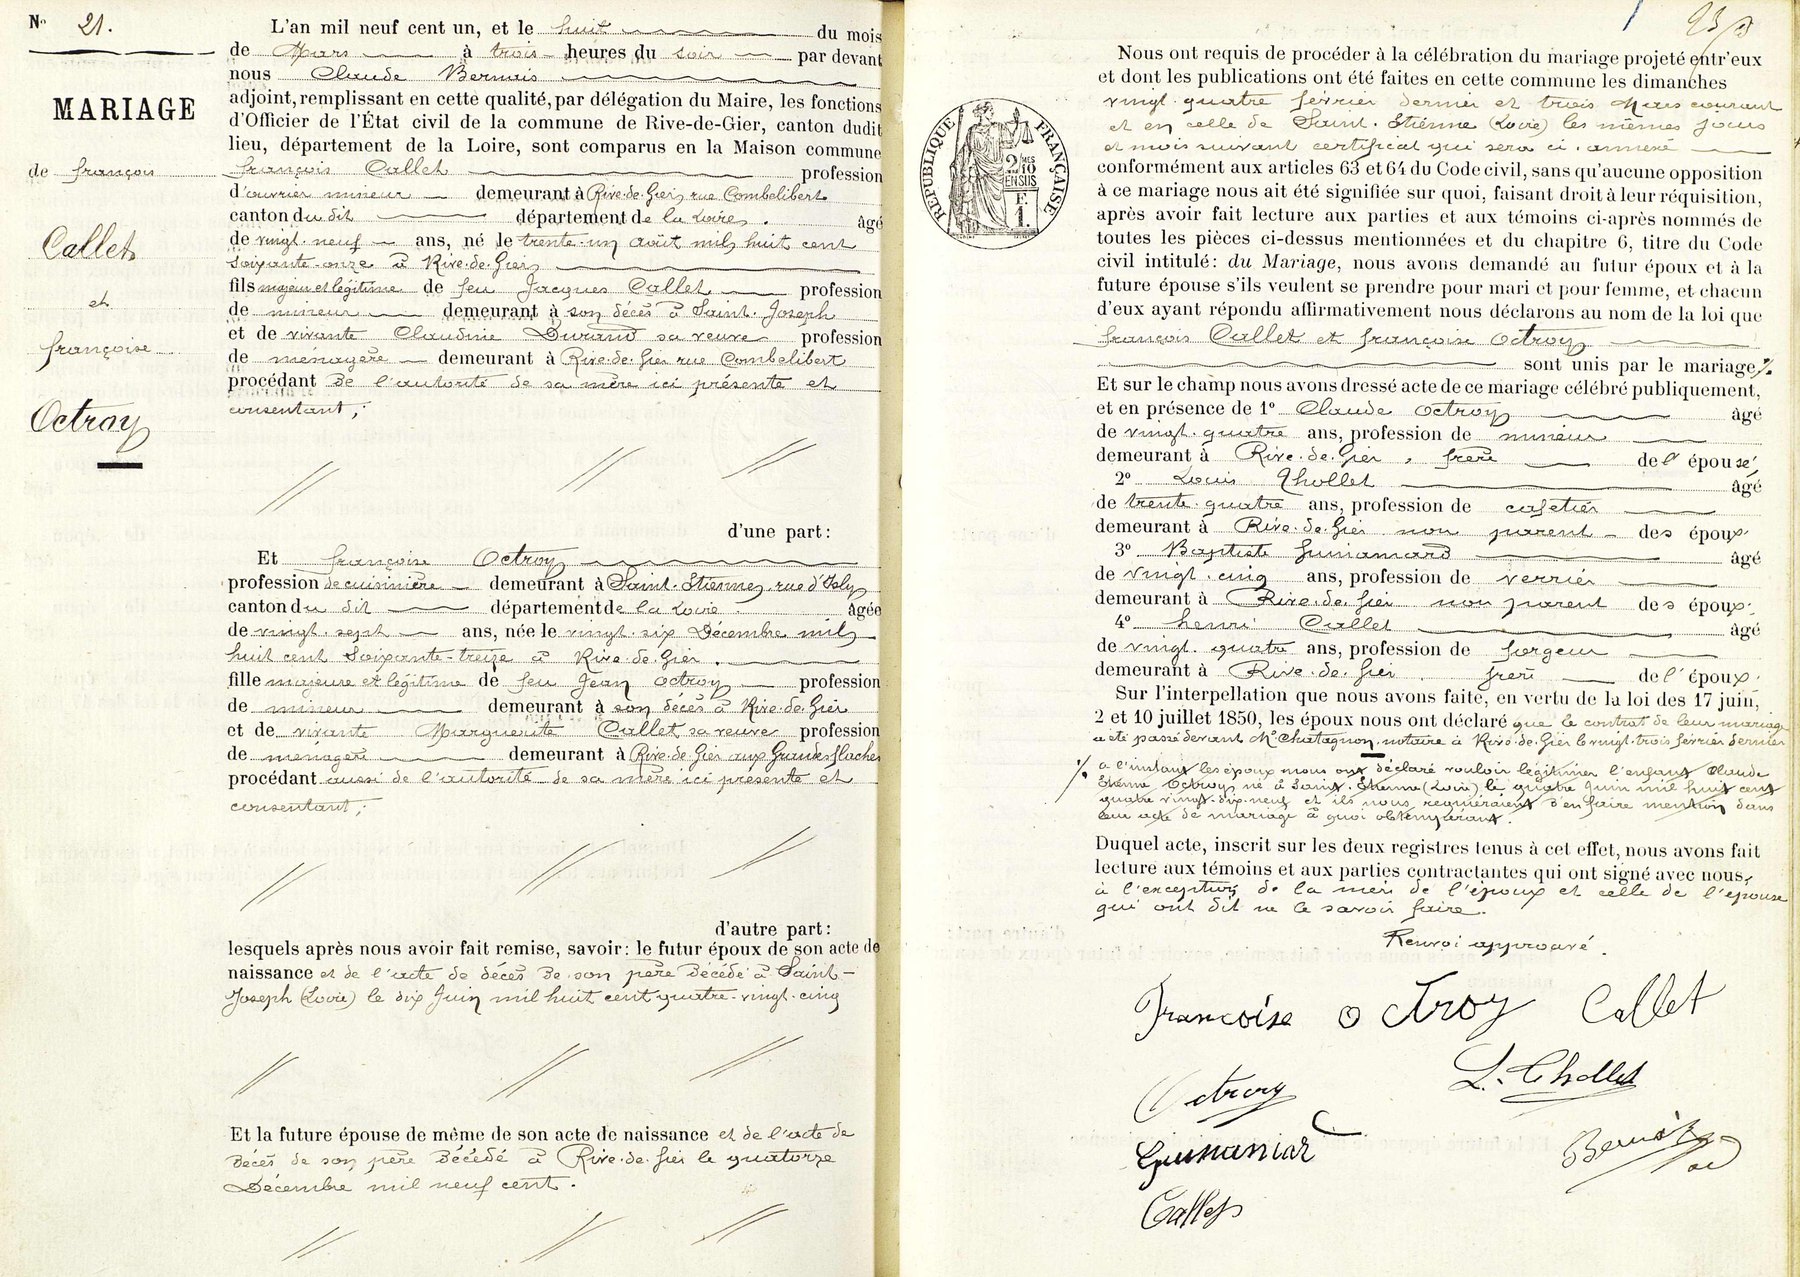 N° 21.
MARIAGE
de françois
Callet
et
françoise
Octroy
L'an mil neuf cent un, et le huit du mois
de Mars à trois heures du soir par devant
nous Claude Bernais
adjoint, remplissant en cette qualité, par délégation du Maire, les fonctions
d'Officier de l'État civil de la commune de Rive-de-Gier, canton dudit
lieu, département de la Loire, sont comparus en la Maison commune
françois Callet profession
d'ouvrier mineur demeurant à Rive-de-Gier, rue Combelibert
canton du dit département de la Loire. âgé
de vingt-neuf ans, né le trente-un août mil huit cent
soixante-onze à Rive-de-Gier
fils majeur et légitime de feu Jacques Callet profession
de mineur demeurant à son décès à Saint-Joseph
et de vivante Claudine Durand sa veuve profession
de ménagère demeurant à Rive-de-Gier rue Combelibert
procédant de l'autorité de sa mère ici présente et
consentant;
d'une part:
Et françoise Octroy
profession de cuisinière demeurant à Saint-Etienne, rue d'Isly
canton du dit département de la Loire âgée
de vingt-sept ans, née le vingt-six Décembre mil
huit cent soixante-treize à Rive-de-Gier.
fille majeure et légitime de feu Jean Octroy profession
de mineur demeurant à son décès à Rive-de-Gier
et de vivante Marguerite Callet, sa veuve profession
de ménagère demeurant à Rive-de-Gier aux Grandes flaches
procédant aussi de l'autorité de sa mère ici présente et
consentant;
d'autre part:
lesquels après nous avoir fait remise, savoir: le futur époux de son acte de
naissance et de l'acte de décès de son père décédé à Saint-
Joseph (Loire) le dix Juin mil huit cent quatre-vingt-cinq
Et la future épouse de même de son acte de naissance et de l'acte de
décès de son père décédé à Rive-de-Gier le quatorze
Décembre mil neuf cent.
RÉPUBLIQUE FRANÇAISE
2/10 MES
EN SUS
F.
1.
Nous ont requis de procéder à la célébration du mariage projeté entr'eux
et dont les publications ont été faites en cette commune les dimanches
vingt-quatre février dernier et trois Mars courant
et en celle de Saint-Etienne (Loire) les mêmes jours
et mois suivant certificat qui sera ci-annexé
conformément aux articles 63 et 64 du Code civil, sans qu'aucune opposition
à ce mariage nous ait été signifiée sur quoi, faisant droit à leur réquisition,
après avoir fait lecture aux parties et aux témoins ci-après nommés de
toutes les pièces ci-dessus mentionnées et du chapitre 6, titre du Code
civil intitulé: du Mariage, nous avons demandé au futur époux et à la
future épouse s'ils veulent se prendre pour mari et pour femme, et chacun
d'eux ayant répondu affirmativement nous déclarons au nom de la loi que
françois Callet et françoise Octroy
sont unis par le mariage /.
Et sur le champ nous avons dressé acte de ce mariage célébré publiquement,
et en présence de 1° Claude Octroy âgé
de vingt-quatre ans, profession de mineur
demeurant à Rive-de-Gier, frère de l'épouse,
2° Louis Thollet âgé
de trente-quatre ans, profession de cafetier
demeurant à Rive-de-Gier non parent des époux.
3° Baptiste Gunamard âgé
de vingt-cinq ans, profession de verrier
demeurant à Rive-de-Gier non parent des époux.
4° henri Callet âgé
de vingt-quatre ans, profession de forgeur
demeurant à Rive-de-Gier. frère de l'époux.
Sur l'interpellation que nous avons faite, en vertu de la loi des 17 juin,
2 et 10 juillet 1850, les époux nous ont déclaré que le contrat de leur mariage
a été passé devant Me Chatagnon, notaire à Rive-de-Gier le vingt-trois février dernier
/. à l'instant les époux nous ont déclaré vouloir légitimer l'enfant Claude
Etienne Octroy né à Saint-Etienne (Loire) le quatre Juin mil huit cent
quatre vingt-dix-neuf et ils nous requièraient d'en faire mention dans
leur acte de mariage à quoi obtempérant.
Duquel acte, inscrit sur les deux registres tenus à cet effet, nous avons fait
lecture aux témoins et aux parties contractantes qui ont signé avec nous,
à l'exception de la mère de l'époux et celle de l'épouse
qui ont dit ne le savoir faire.
Renvoi approuvé.
Francoise octroy Callet
L. Thollet
Octroy
Callet